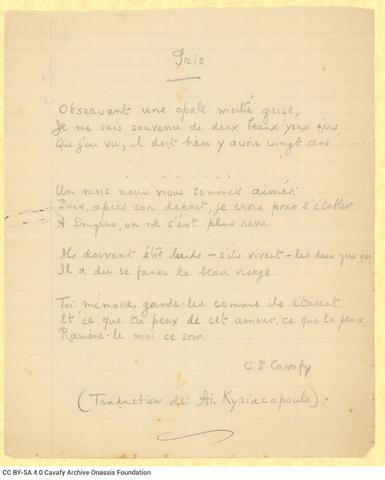 Gris
Observant une opale moitié grise,
Je me suis souvenu de deux beaux yeux gris
Que j'ai vu, il doit bien y avoir vingt ans.....
. . . . . . . . .
Un mois nous nous sommes aimés.
Puis, après son départ, je crois pour s'établir
À Smyrne, on ne s'est plus revu.
Ils doivent être laids – s'ils vivent – les deux yeux gris
Il a du se faner le beau visage.
Toi mémoire, garde-les comme ils étaient.
Et ce que tu peux de cet amour, ce que tu peux
Ramène-le moi ce soir.
C. P. Cavafy
(Traduction de A. Kyriacopoulo).
CC BY-SA 4.0 Cavafy Archive Onassis Foundation